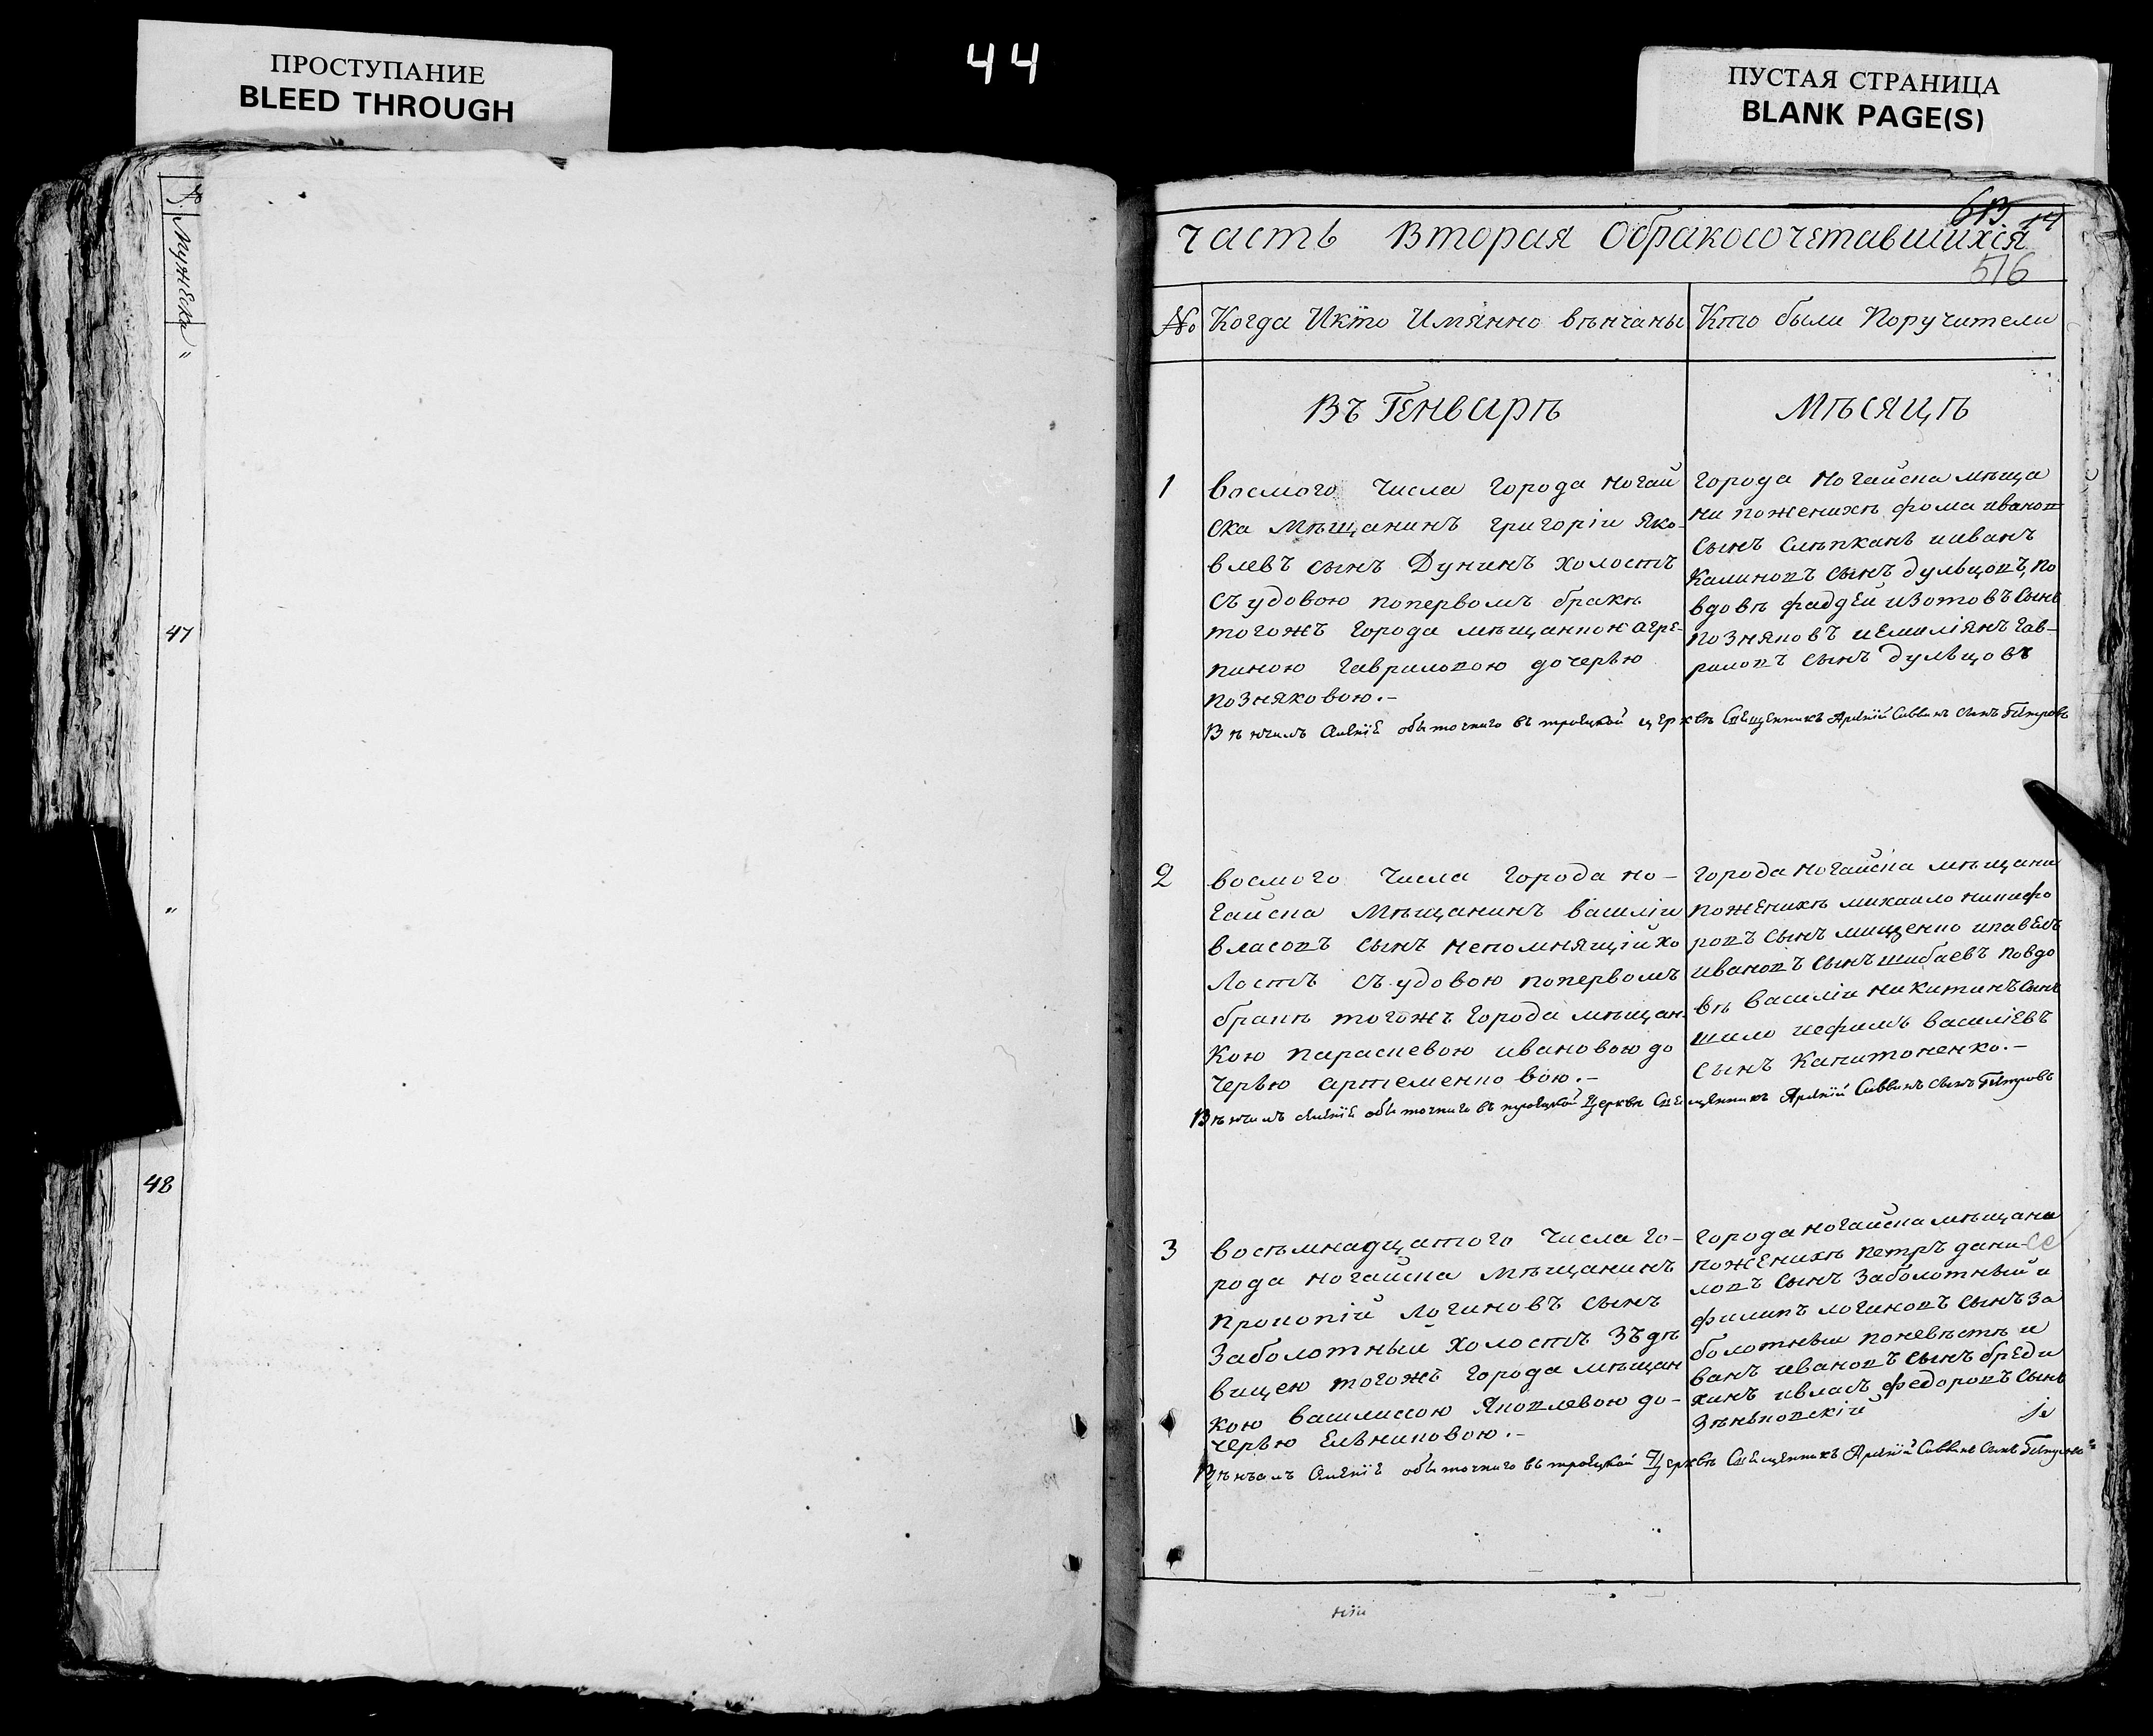 ПРОСТУПАНИЕ
BLEED THROUGH
44
ПУСТАЯ СТРАНИЦА
BLANK PAGE(S)
Мужеска
47
48
Часть Вторая Обракосочетавшихся
576
№ Когда Икто Имянно вѣнчаны
Кто были Поручители
Въ Генварѣ
Мѣсяцѣ
1
восмого числа города Ногай
ска Мѣщанинъ григоріи Яко-
влевъ сынъ Дунинъ холостъ
съ удовою попервомъ бракѣ
тогожъ города мѣщанкою агре-
пиною гавриловою дочерью
позняковою.-
города Ногайска мѣща
ни поженихѣ фома иванов
сынъ слѣпканъ ииванъ
Калиновъ сынъ дульцовъ, по
вдовѣ фаддей изотовъ сынъ
позняковъ иемиліянъ гав-
риловъ сынъ дульцовъ
Вѣнчилъ обыточнаго въ троецкой церквѣ Свещенникъ Арсеній Саввинъ сынъ Петровъ
2
восмого числа города но-
гайска Мѣщанинъ василіи
власовъ сынъ непомнящій хо
лостъ съ удовою попервомъ
бракѣ тогожъ города мѣщан-
кою параскевою ивановою до
черью артеменковою.-
города ногайска мѣщани
поженихѣ михаило никифо
ровъ сынъ мищенко ипавелъ
ивановъ сынъ шибаевъ повдо
вѣ василіи никитинъ сынъ
шило иефимъ василіевъ
сынъ Капитоненко.-
Вѣнчилъ обыточнаго въ троецкой Церквѣ Свещенникъ Арсеній Саввинъ сынъ Петровъ
3
восѣмнадцатого числа го-
рода ногайска мѣщанинъ
прокопій логиновъ сынъ
Заболотный холостъ зъдѣ
вицею тогожъ города мѣщан
кою василисою Яковлевою до-
черью Ельниковою.-
города ногайска мѣщани
поженихѣ петръ дани
ловъ сынъ Заболотный и
филипъ логиновъ сынъ за
болотный поневѣстѣ и
ванъ ивановъ сынъ бреди
хинъ ивласъ федоровъ сынъ
Зѣньковскій
Вѣнчалъ обыточнаго въ троецкой Церквѣ Свещенникъ Арсеній Саввинъ сынъ Петровъ